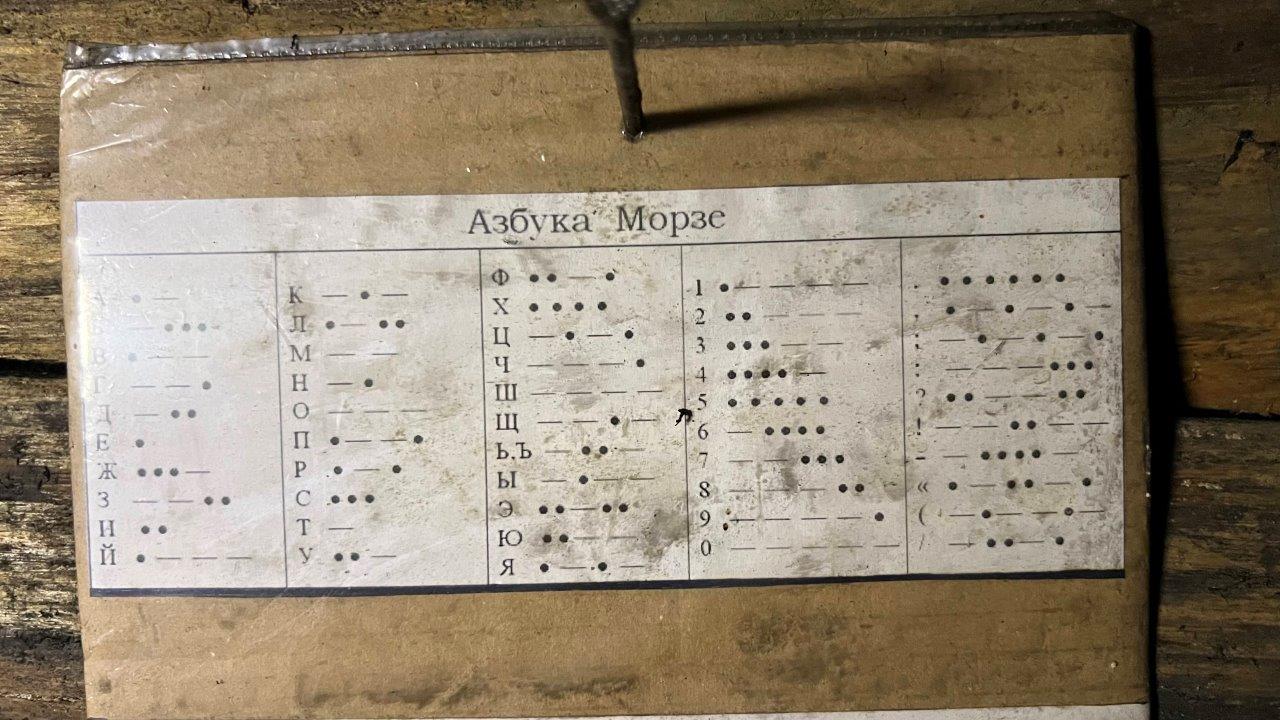 Азбука Морзе
А • —
Б — • • •
В • — —
Г — — •
Д — • •
Е •
Ж • • • —
З — — • •
И • •
Й • — — —
К — • —
Л • — • •
М — —
Н — •
О — — —
П • — — •
Р • — •
С • • •
Т —
У • • —
Ф • • — •
Х • • • •
Ц — • — •
Ч — — — •
Ш — — — —
Щ — — • —
Ь.Ъ — • • —
Ы — • — —
Э • • — • •
Ю • • — —
Я • — • —
1 • — — — —
2 • • — — —
3 • • • — —
4 • • • • —
5 • • • • •
6 — • • • •
7 — — • • •
8 — — — • •
9 — — — — •
0 — — — — —
. • • • • • •
, • — • — • —
; — • — • — •
: — — — • • •
? • • — — • •
! — — • • — —
- — • • • • —
« • — • • — •
( — • — — • —
/ — • • — •